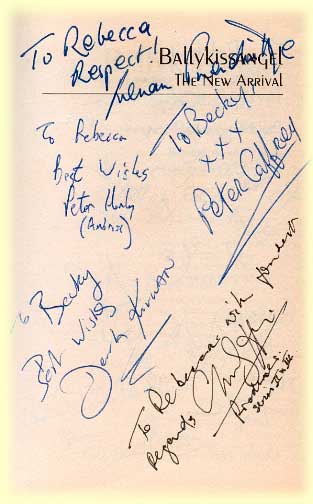 To Rebecca
Respect!
BALLYKISSANGEL
THE NEW ARRIVAL
To Becky!
xxx
Peter Caffrey
To Rebecca
Best Wishes
Peter Hanly
(Ambrose)
To Becky
Best Wishes
To Rebecca, with
regards
Producer.